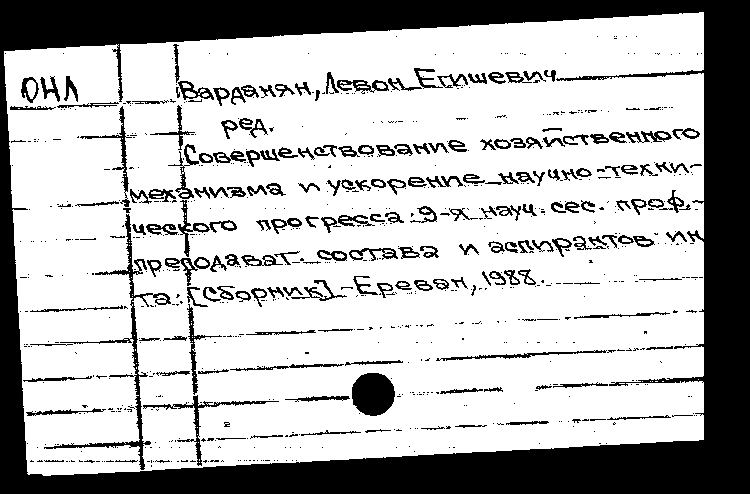 ОНЛ
Варданян, Левон Егишевич
ред.
Совершенствование хозяйственного
механизма и ускорение научно-техни-
ческого прогресса: 9-я науч. сес. проф.-
преподават. состава и аспирантов ин-
та: [Сборник] - Ереван, 1988.